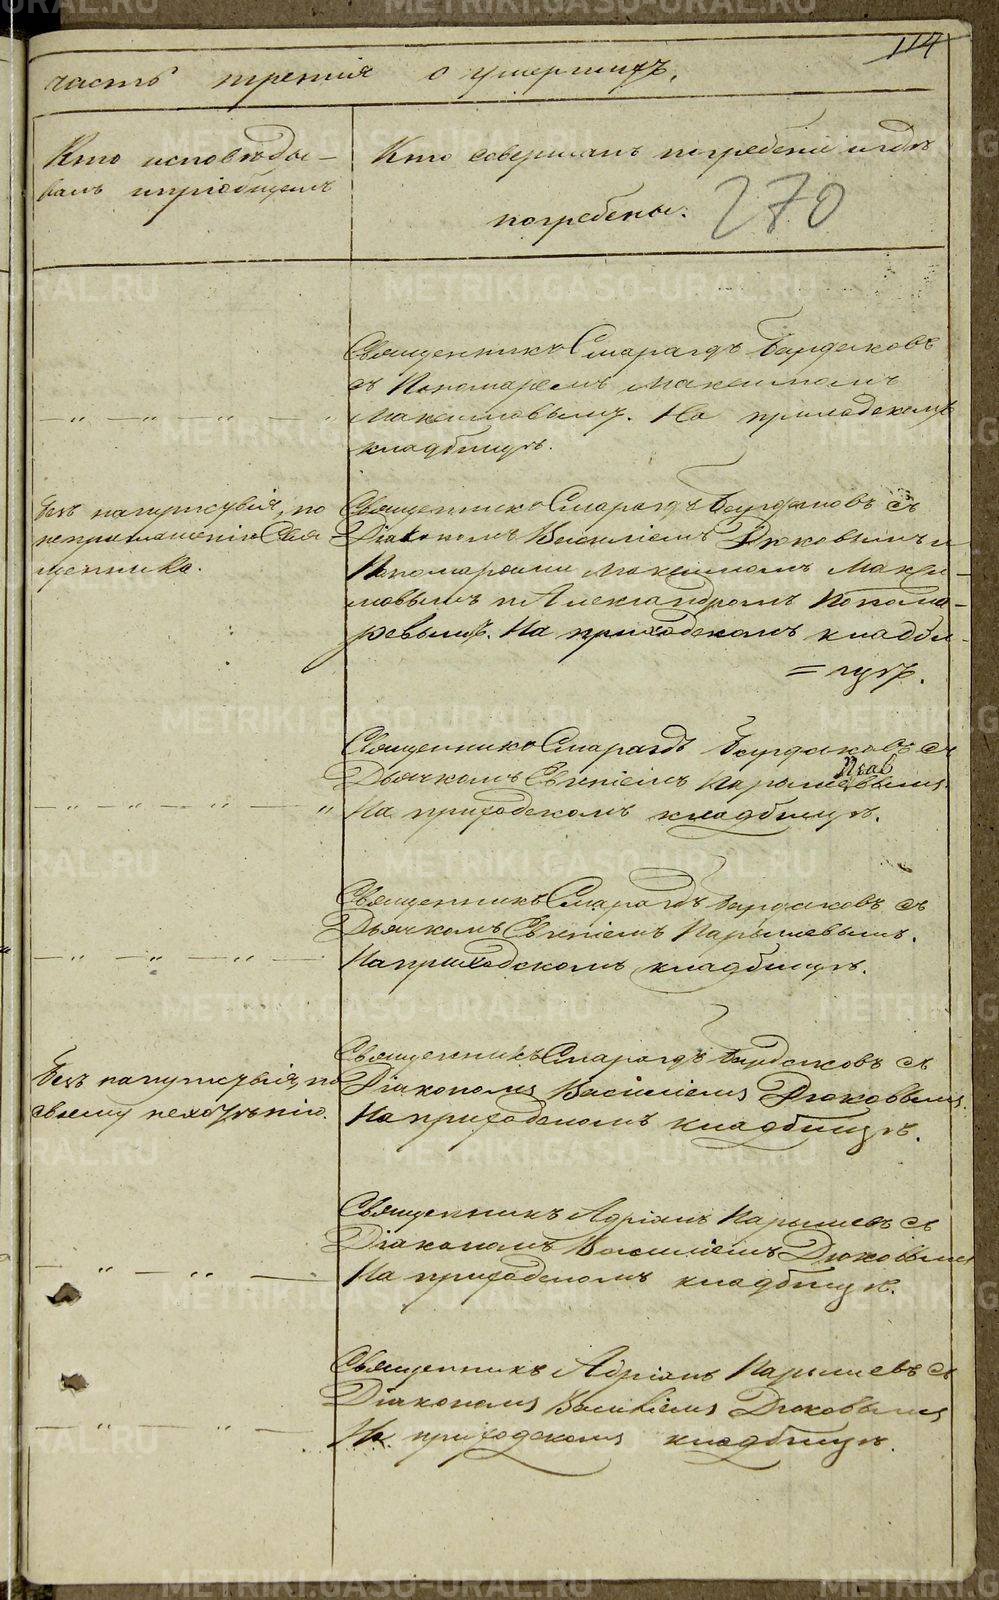 114
часть третія о умершихъ.
Кто исповѣды-
валъ и пріобщалъ
Кто совершалъ погребеніе и гдѣ
погребены.
270
Священникъ Смарагдъ Бурдаковъ
съ Пономаремъ Максимомъ
Максимовымъ. На приходскомъ
кладбищѣ.
Безъ напутствія, по
неприглашенію Свя-
щенника.
Священникъ Смарагдъ Бурдаковъ съ
Діакономъ Василіемъ Дюковымъ и
Пономарями Максимомъ Макси-
мовымъ и Александромъ Понома-
ревымъ. На приходскомъ кладби-
=щѣ.
Священникъ Смарагдъ Бурдаковъ съ
Дьячкомъ Евгеніемъ Парышевымъ.
На приходскомъ кладбищѣ.
Священникъ Смарагдъ Бурдаковъ съ
Дьячкомъ Евгеніемъ Парышевымъ.
На приходскомъ кладбищѣ.
Безъ напутствія, по
своему нехотѣнію.
Священникъ Смарагдъ Бурдаковъ съ
Діакономъ Василіемъ Дюковымъ.
На приходскомъ кладбищѣ.
Священникъ Адріанъ Парышевъ съ
Діакономъ Василіемъ Дюковымъ
На приходскомъ кладбищѣ.
Священникъ Адріанъ Парышевъ съ
Діакономъ Василіемъ Дюковымъ
На приходскомъ кладбищѣ.
METRIKI.GASO-URAL.RU